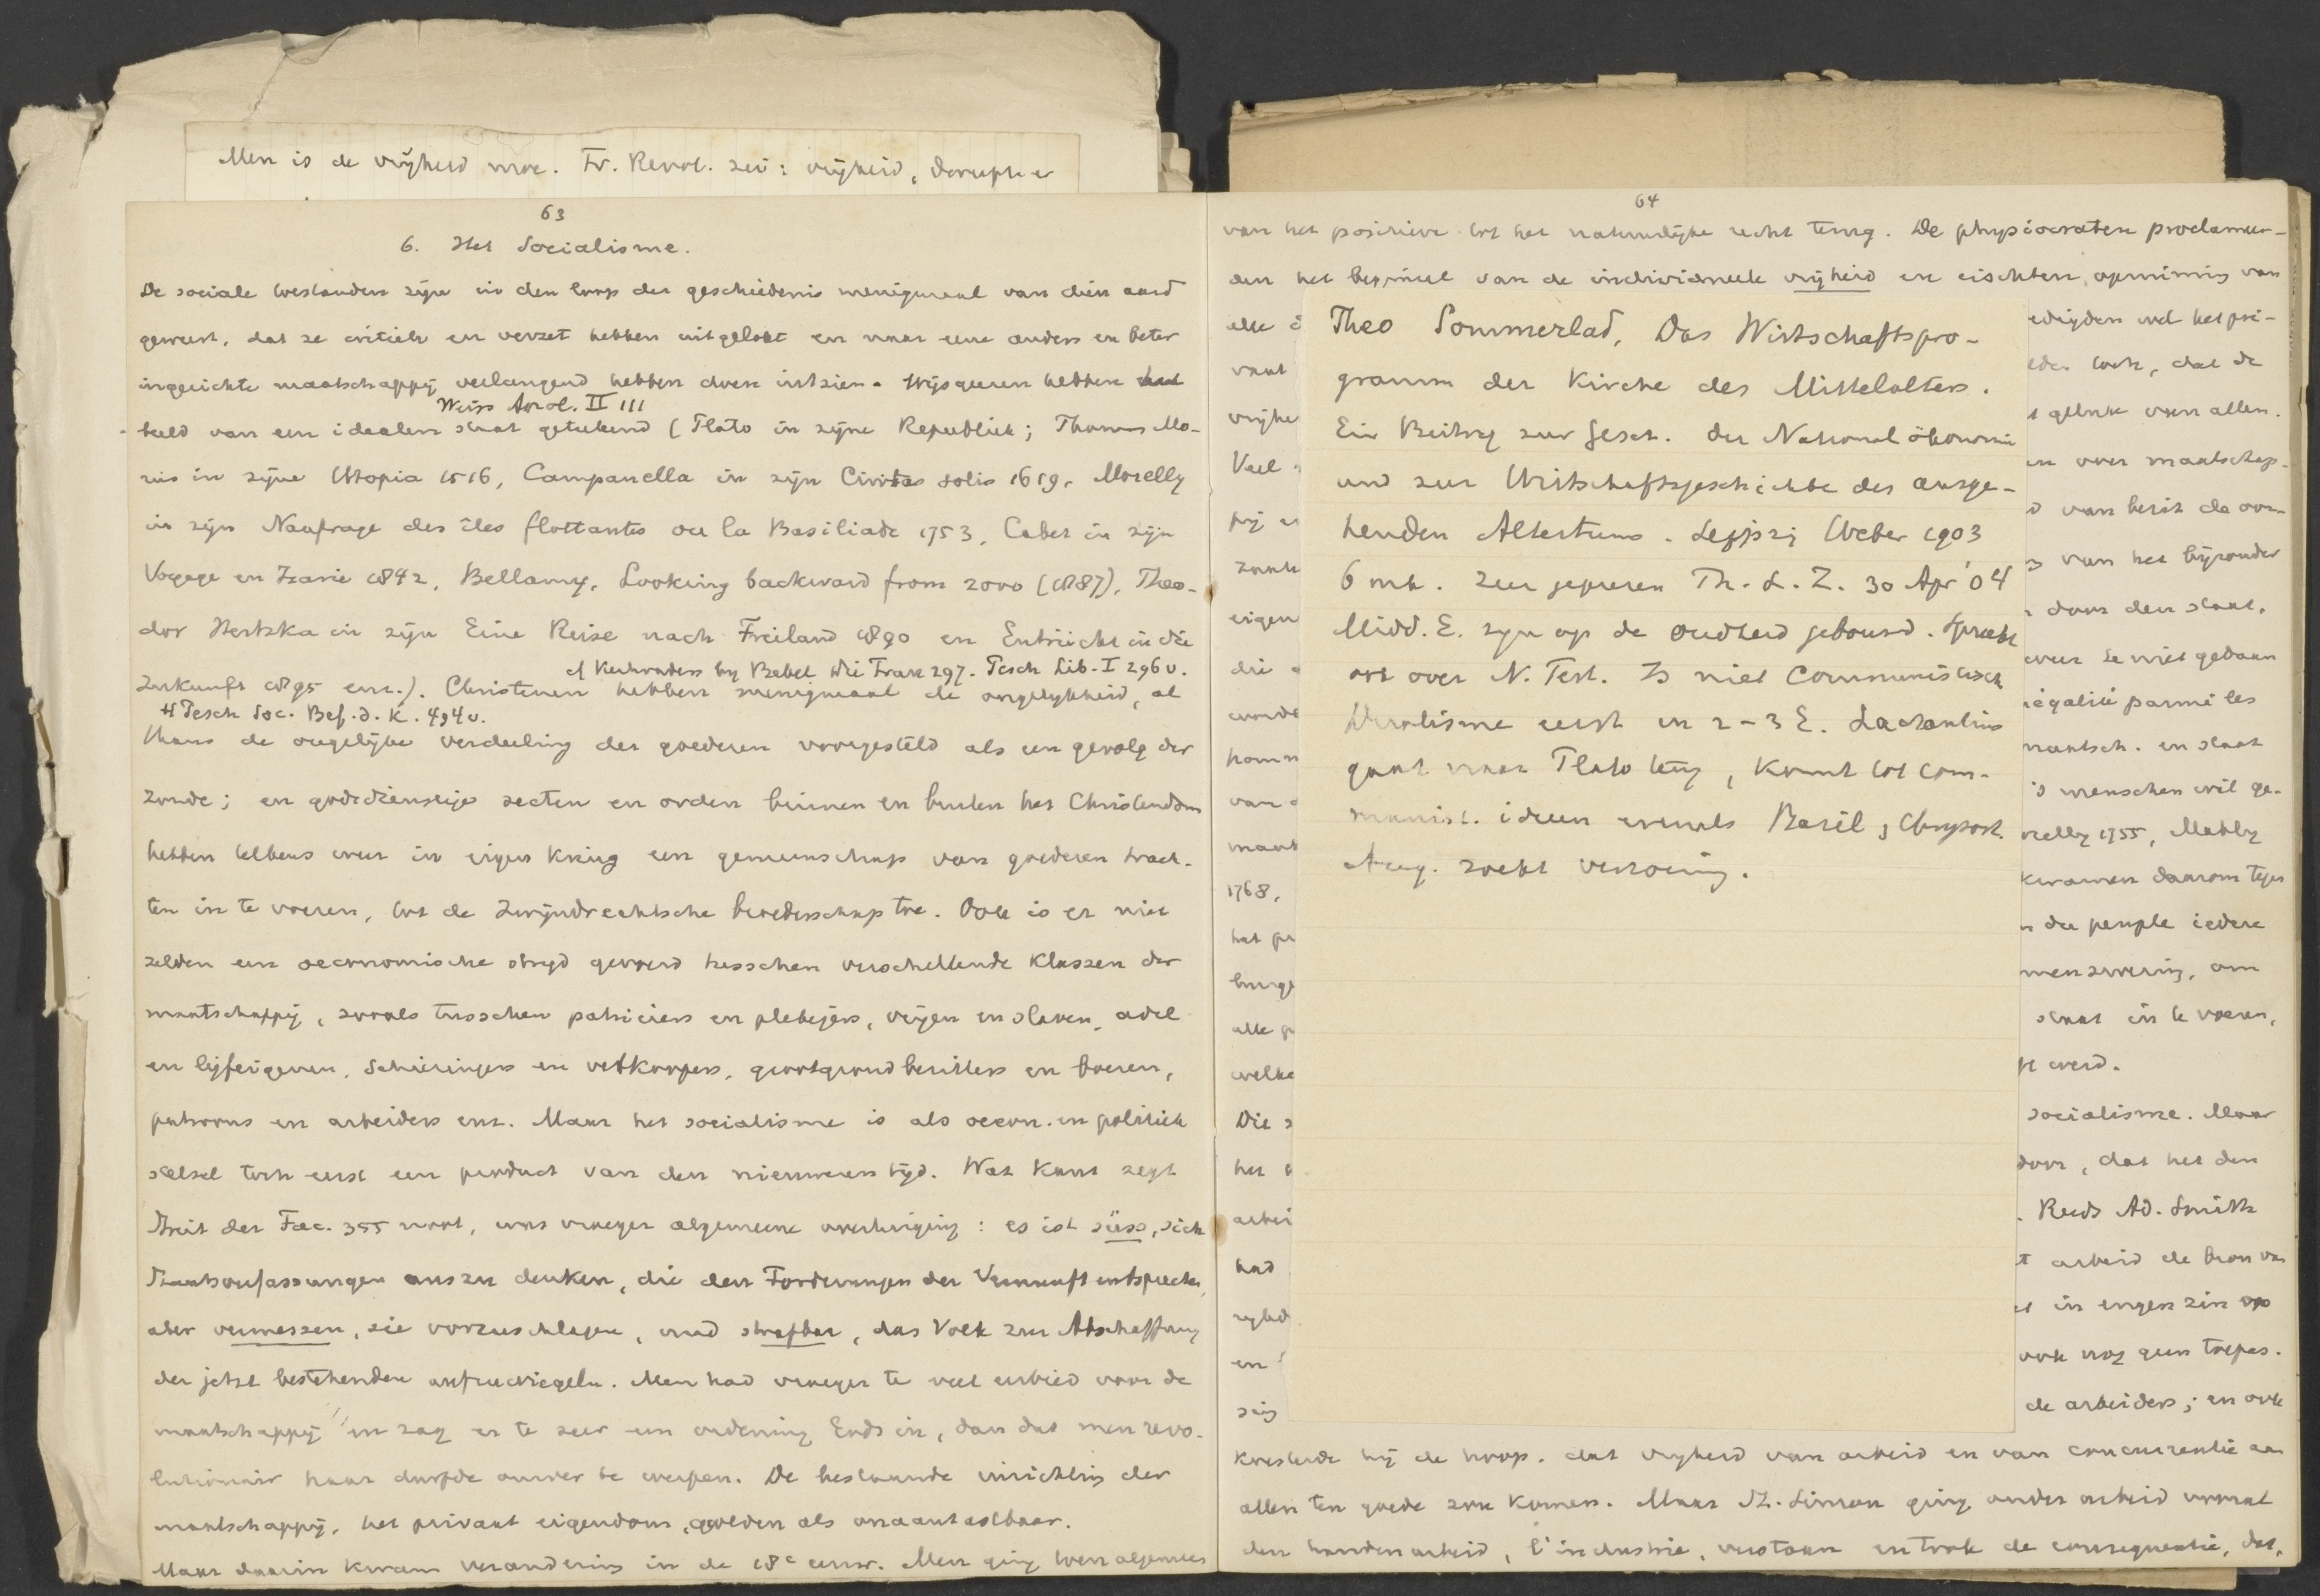 Men is de vrijheid moe. Fr. Revol. zei: vrijheid,
63
6. Het Socialisme.
De sociale toestanden zijn in den loop der geschiedenis menigmaal van dien aard
geweest, dat ze critiek en verzet hebben uitgelokt en naar eene anders en beter
ingerichte maatschappij verlangend hebben doen uitzien. Wijsgeeren hebben het
Weiss Apol. II 111
beeld van een idealen staat geteekend (Plato in zijne Republiek; Thomas Mo-
rus in zijne Utopia 1516, Campanella in zijn Civitas solis 1619, Morelly
in zijn Naufrage des îles flottantes ou la Basiliade 1753, Cabet in zijn
Voyage en Icarie 1842, Bellamy, Looking backward from 2000 (1887), Theo-
dor Hertzka in zijn Eine Reise nach Freiland 1890 en Entrückt in die
cf Kerkvaders by Bebel Die Frau 297. Pesch Lib. I 296 v.
Zukunft 1895 enz.). Christenen hebben menigmaal de ongelijkheid, al
Pesch Soc. Bef. d. K. 494 v.
thans de ongelijke verdeeling der goederen voorgesteld als een gevolg der
zonde; en godsdienstige secten en orden binnen en buiten het Christendom
hebben telkens weer in eigen kring een gemeenschap van goederen trach-
ten in te voeren, tot de Zwijndrechtsche broederschap toe. Ook is er niet
zelden een oeconomische strijd gevoerd tusschen verschillende klassen der
maatschappij, zooals tusschen patriciers en plebejers, vrijen en slaven, adel
en lijfeigenen, Schieringers en vetkoopers, grootgrondbezitters en boeren,
patroons en arbeiders enz. Maar het socialisme is als oecon. en politiek
stelsel toch eerst een product van den nieuweren tijd. Wat Kant zegt
Streit der Fac. 355 noot, was vroeger algemeene overtuiging: es ist süss, sich
Staatsverfassungen auszudenken, die den Forderungen der Vernunft entsprechen,
aber vermessen, sie vorzuschlagen, und strafbar, das Volk zur Abschaffung
der jetzt bestehenden aufzuwiegeln. Men had vroeger te veel eerbied voor de
maatschappij en zag er te zeer een ordening Gods in, dan dat men revo-
lutionair haar durfde omver te werpen. De bestaande inrichting der
maatschappij, het privaat eigendom, golden als onaantastbaar.
Maar daarin kwam verandering in de 18e eeuw. Men ging toen algemeen
64
van het positieve tot het natuurlijke recht terug. De physiocraten proclameer-
den het beginsel van de individueele vrijheid en eischten opruiming van
Theo Sommerlad, Das Wirtschaftspro-
gramm der Kirche des Mittelalters.
Ein Beitrag zur Gesch. der Nationalökonomie
und zur Wirtschaftsgeschichte des ausge-
henden Altertums. Leipzig Weber 1903
6 mk. Zeer geprezen Th. L. Z. 30 Apr '04
Midd. E. zijn op de oudheid gebouwd. Spreekt
ook over N. Test. Is niet communistisch
eerst in 2-3 E. Lactantius
gaat naar Plato terug, komt tot com-
munist. ideen evenals Basil, Chrysost.
Aug. zoekt verzoening.
1768,
het gelu
alle
welke
Die
had
en
t geluk van allen.
en over maatschap-
van het bijzonder
door den staat.
égalité parmi les
maatsch. en staat
menschen wil ge-
relly 1755, Mably
kwamen daarom tegen
du peuple iedere
menzwering, om
staat in te voeren,
werd.
socialisme. Maar
door, dat het den
Reeds Ad. Smith
arbeid de bron van
in engen zin op
ook nog geen toepas-
de arbeiders; en ook
koesterde hij de hoop, dat vrijheid van arbeid en van concurrentie aan
allen ten goede zou komen. Maar St. Simon ging onder arbeid vooral
den handenarbeid, l'industrie, verstaan en trok de consequentie, dat,